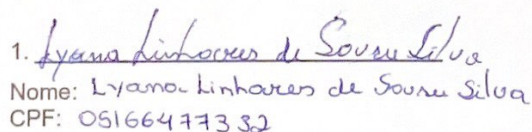 1. Lyana Linhares de Sousa Silva
Nome: Lyana Linhares de Sousa Silva
CPF: 05166477332